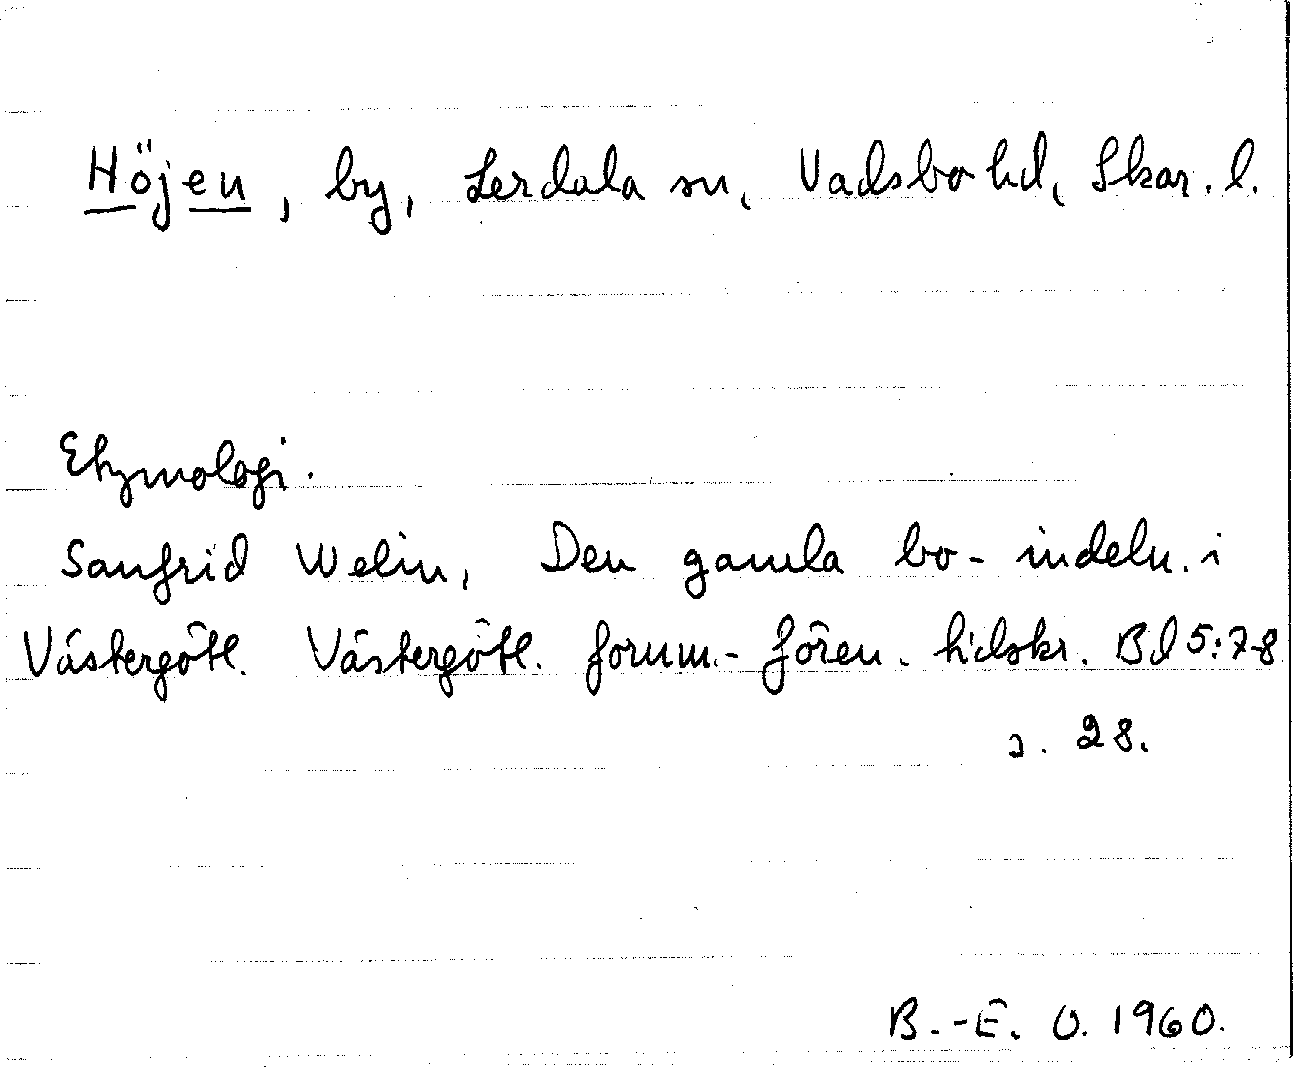 Höjen, by, Lerdala sn, Vadsbo hd, Skar. l.
Etymologi.
Sanfrid Welin, Den gamla bo-indeln. i
Västergötl. Västergötl. fornm.-fören. tidskr. Bd 5:7-8
s. 28.
B.-E. O. 1960.